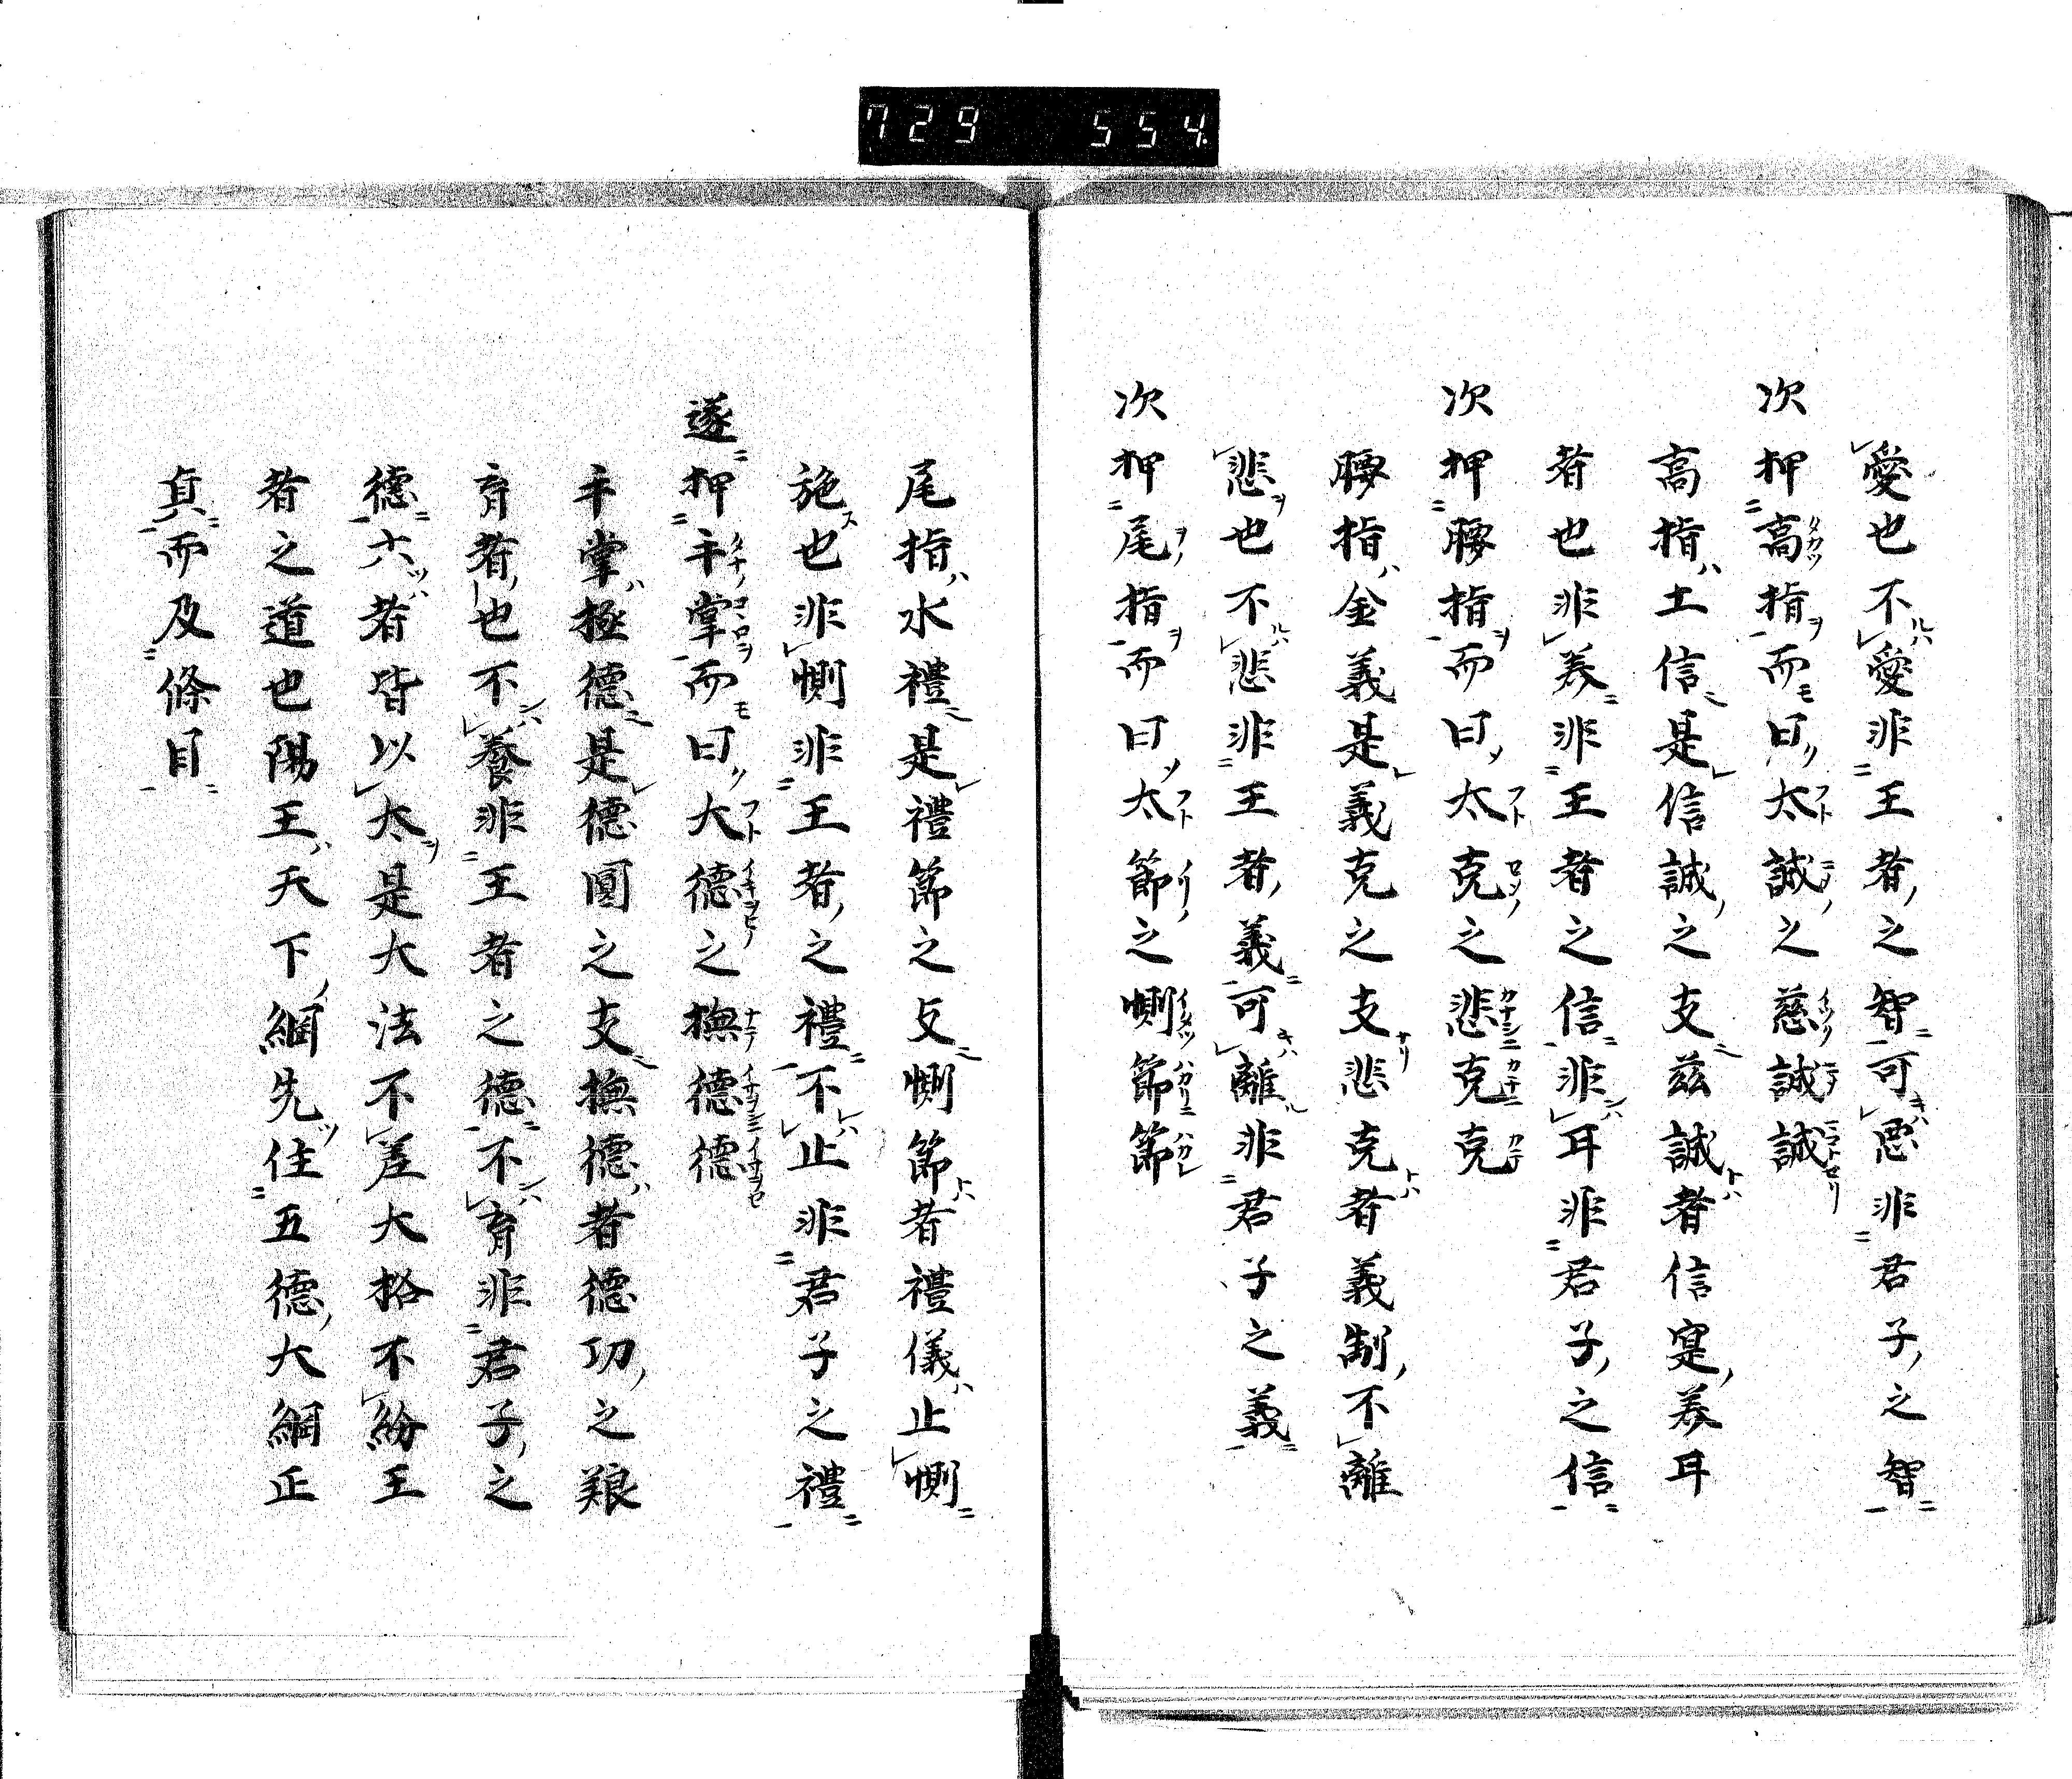 729 554
愛也不愛非王者之智可恩非君子之智
次押高指而曰太誠之慈誠誠
高指土信是信誠之支茲誠者信寔養耳
者也非養非王者之信非耳非君子之信
次押腰指而曰太克之悲克克
腰指金義是義克之支悲克者義制不離
悲也不悲非王者義可離非君子之義
次押尾指而曰太節之惻節節
尾指水禮是禮節之支惻節者禮儀止惻
施也非惻非王者之禮不止非君子之禮
遂押手掌而曰大德之撫德德
手掌極德是德圓之支撫德者德功之艱
育者也不養非王者之德不育非君子之
德六者皆以太是大法不差大格不紛王
者之道也陽王天下綱先住五德大綱正
貞而及條目